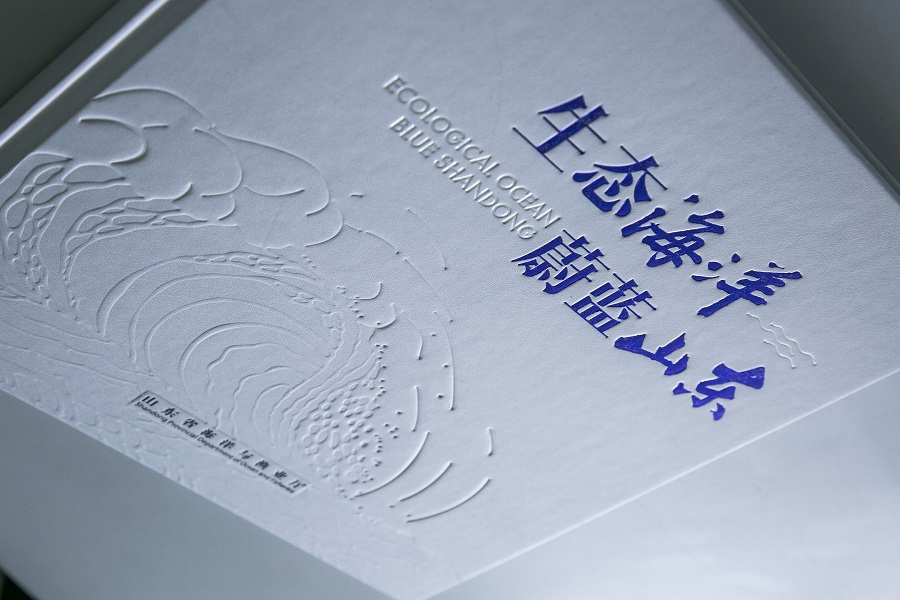 生态海洋
蔚蓝山东
ECOLOGICAL OCEAN
BLUE SHANDONG
山东省海洋与渔业厅
Shandong Provincial Department of Ocean and Fisheries